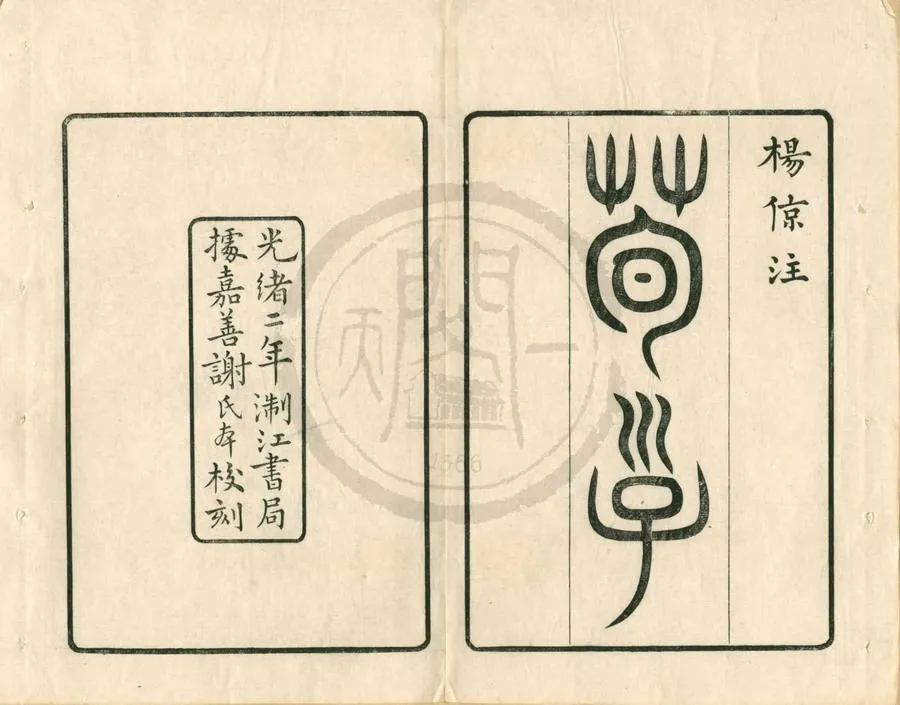 楊倞注
荀子
光緒二年淛江書局
據嘉善謝氏夲校刻
天一閣
1566